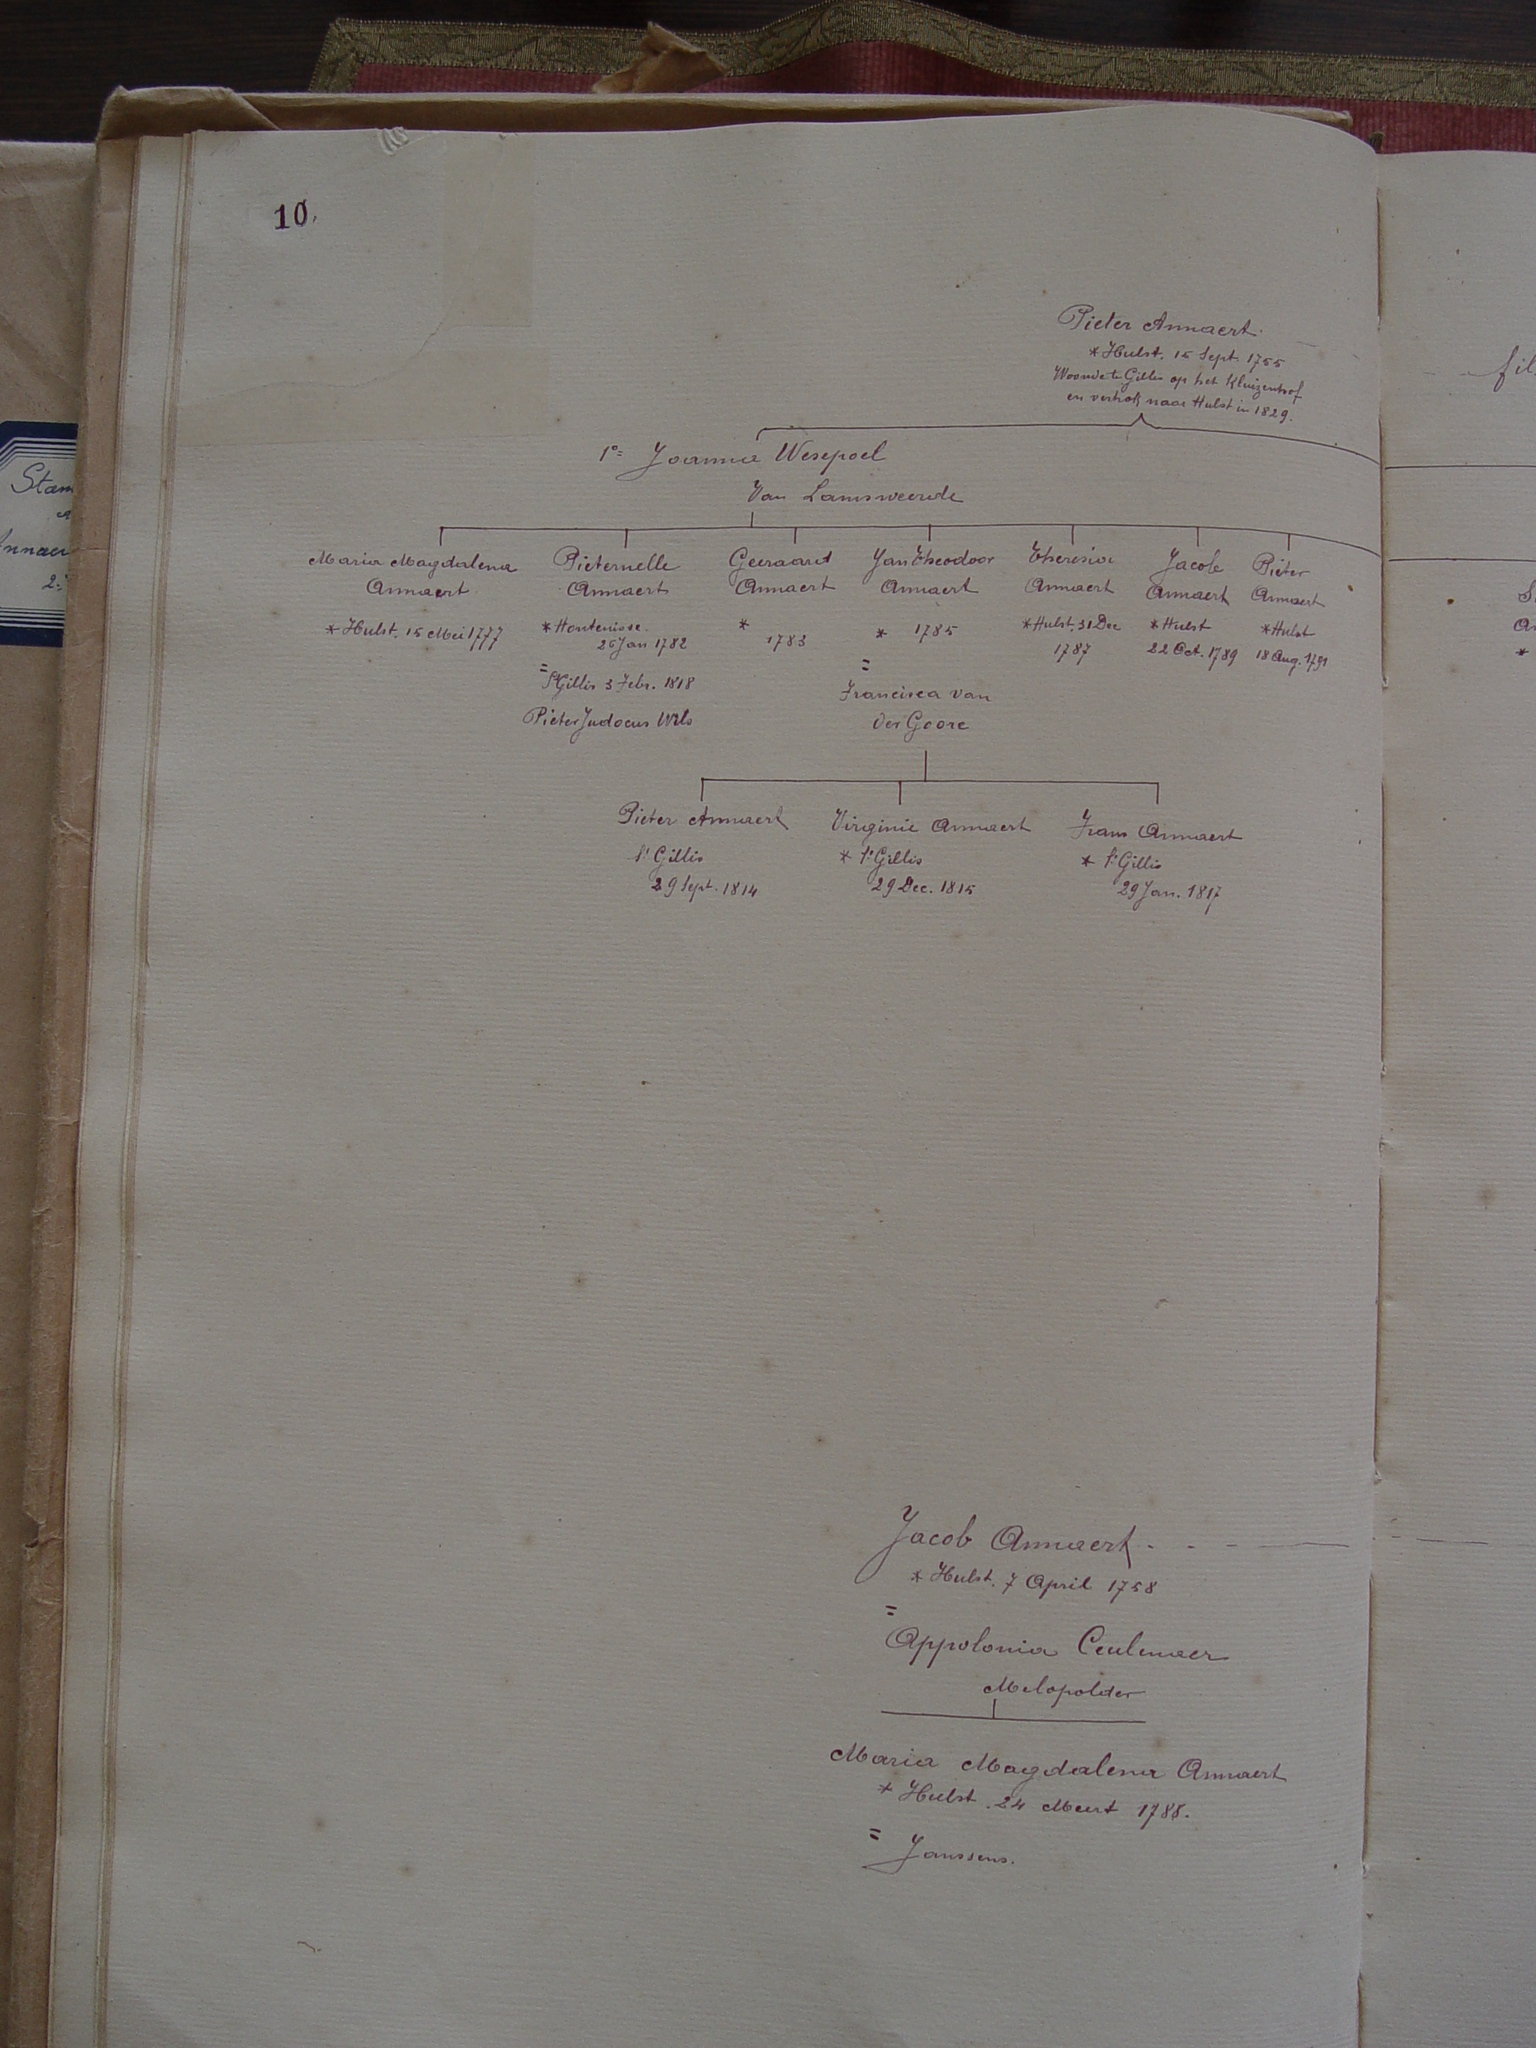 10.
Pieter Annaert.
* Hulst. 15 Sept. 1755
Woonde te Gillis op het Kluizenhof
en vertrok naar Hulst in 1829.
fil
1º= Joanna Wesepoel
Van Lamsweerde
Maria Magdalena
Annaert
* Hulst. 15 Mei 1777
Pieternelle
Annaert
* Hontenisse.
26 Jan 1782
=
St Gillis 3 Febr. 1818
Pieter Judocus Wils
Geeraard
Annaert
*
1783
Jan Theodoor
Annaert
* 1785
=
Francisca van
der Goore
Theresia
Annaert
* Hulst, 31 Dec
1787
Jacob
Annaert
* Hulst
22 Oct. 1789
Pieter
Annaert
* Hulst
18 Aug. 1791
*
Pieter Annaert
St Gillis
29 Sept. 1814
Virginie Annaert
* St Gillis
29 Dec. 1815
Frans Annaert
* St Gillis
29 Jan. 1817
Jacob Annaert
* Hulst. 7 April 1758
=
Appolonia Ceulemaer
Melopolder
Maria Magdalena Annaert
* Hulst. 24 Meert 1788.
= Janssens.
Stam
Annaer
2: